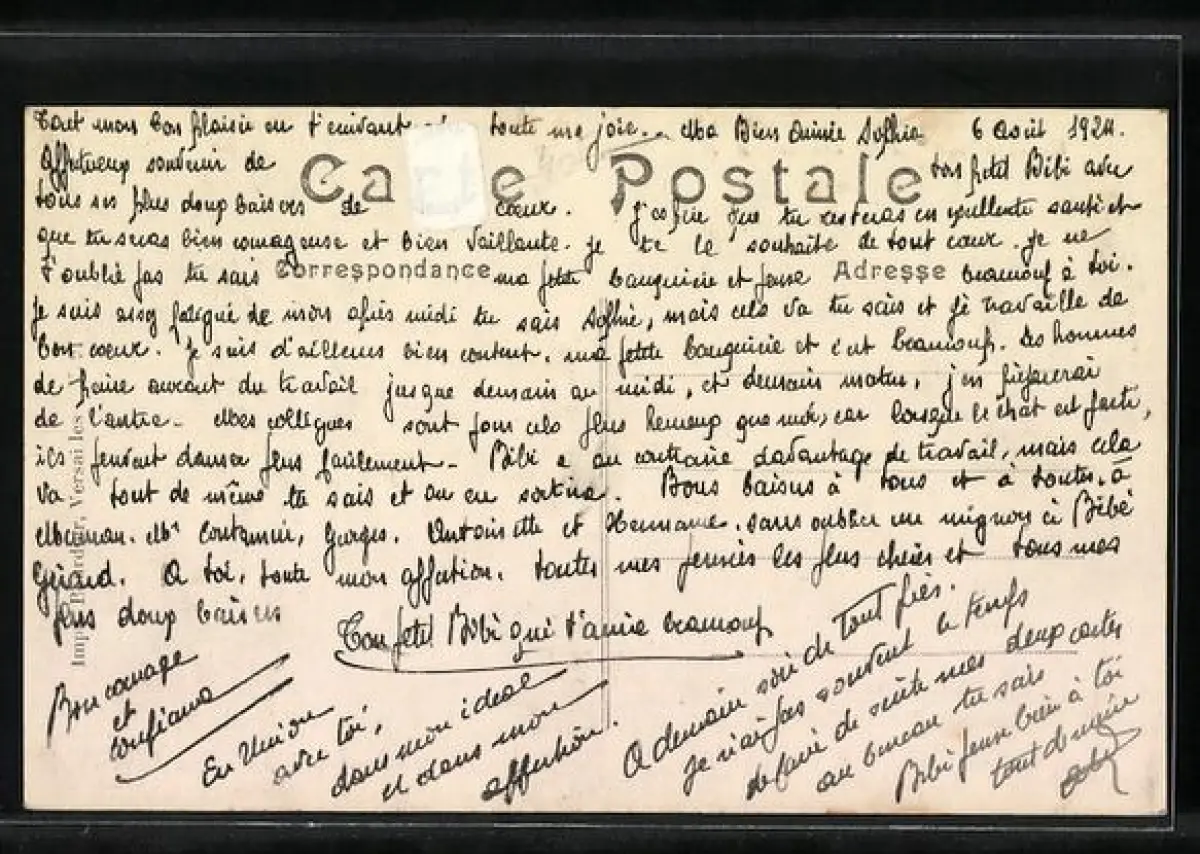 Tout mon bon plaisir en t'écrivant toute ma joie. Ma Bien Aimée Sophie 6 Août 1924.
Affectueux souvenir de ton petit Bibi avec
Carte Postale
tous ses plus doux baisers de cœur. J'espère que tu resteras en excellente santé et
que tu seras bien courageuse et bien vaillante. je te le souhaite de tout cœur. je ne
t'oublie pas tu sais ma petite et pense beaucoup à toi.
Correspondance Adresse
je suis assez fatigué de mon après midi tu sais Sophie, mais cela va tu sais et je travaille de
bon cœur. je suis d'ailleurs bien content. ma petite et c'est beaucoup. Les hommes
de Paire auront du travail jusque demain au midi, et demain matin, j'en préparerai
de l'autre. Mes collègues sont pour cela plus heureux que moi, car lorsque le chat est parti,
ils peuvent danser plus facilement. Bibi a au contraire davantage de travail, mais cela
va tout de même tu sais et on en sortira. Bons baisers à tous et à toutes. à
Maman. Mr Georges. Antoinette et sans oublier un mignon à Bébé
Gérard. A toi, toute mon affection. toutes mes pensées les plus chères et tous mes
plus doux baisers
Ton petit Bibi qui t'aime beaucoup
Bon courage
et
confiance
En Union
avec toi,
dans mon idéal
et dans mon
affection.
A demain soir de tout près.
je n'ai pas souvent le temps
de faire de suite mes deux cartes
au bureau tu sais
Bibi pense bien à toi
tout de même
Imp. Versailles